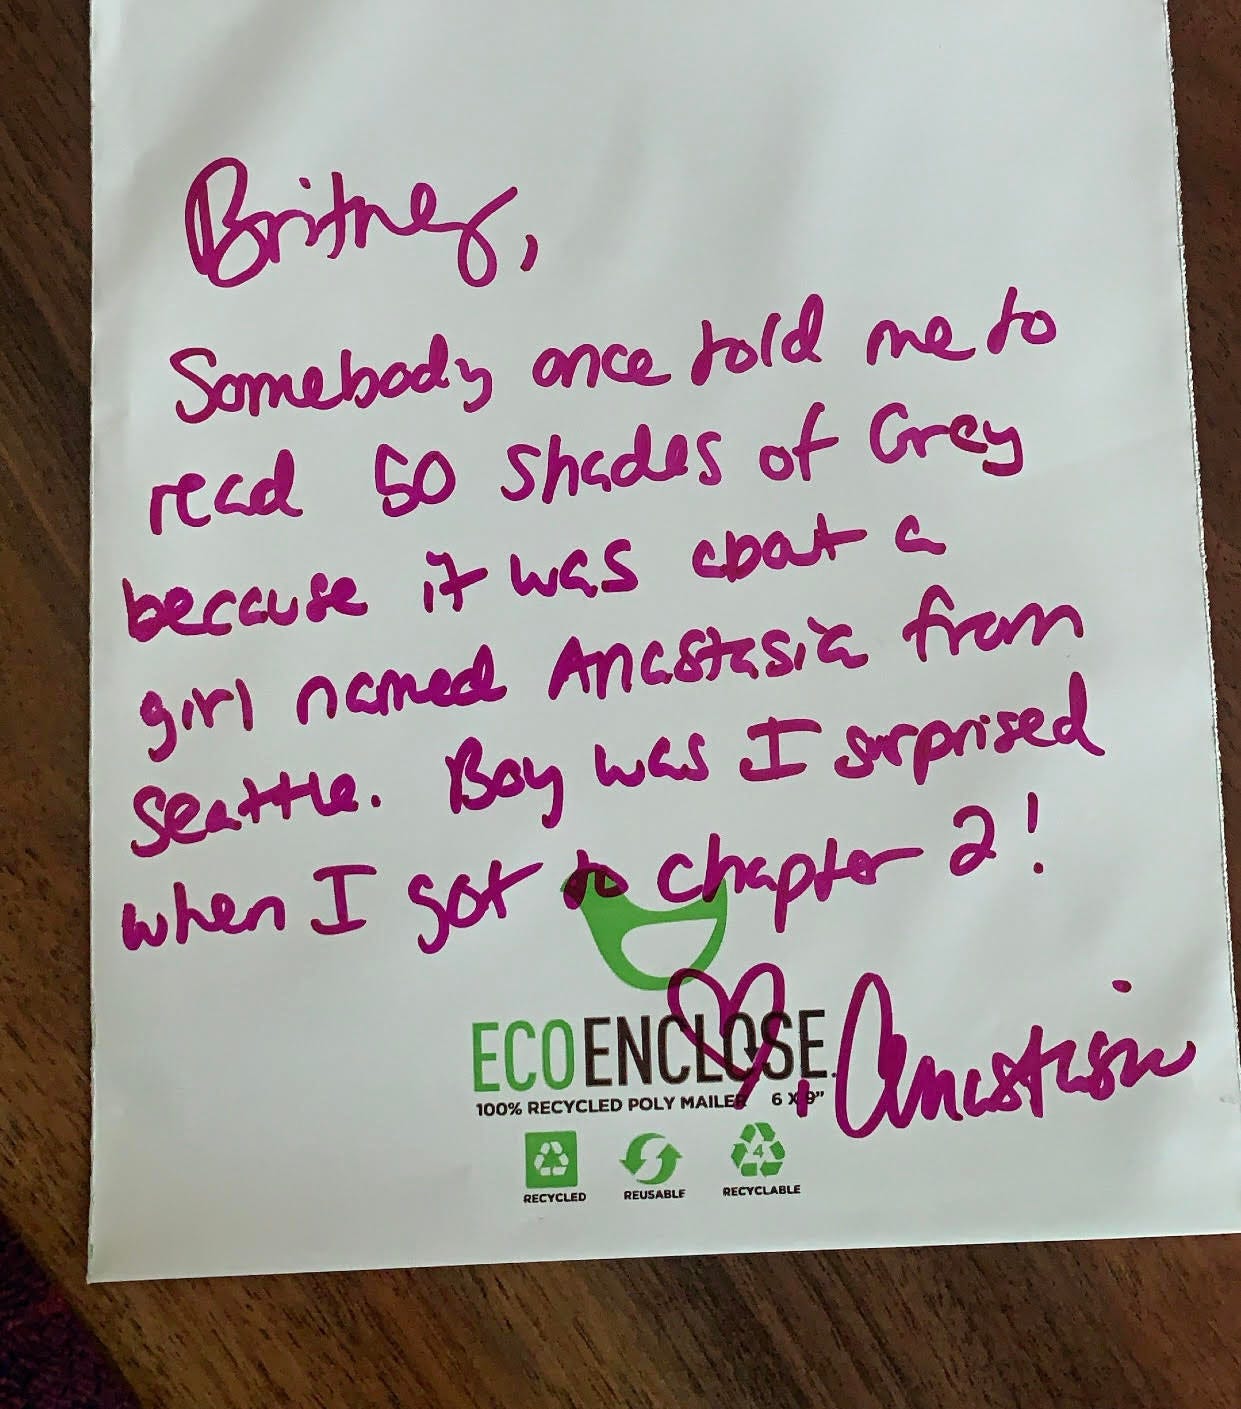 Britney,
Somebody once told me to
read 50 Shades of Grey
because it was about a
girl named Anastasia from
Seattle. Boy was I surprised
when I got to chapter 2!
♡, Anastasia
ECOENCLOSE.
100% RECYCLED POLY MAILER 6 X 9"
RECYCLED REUSABLE RECYCLABLE
4